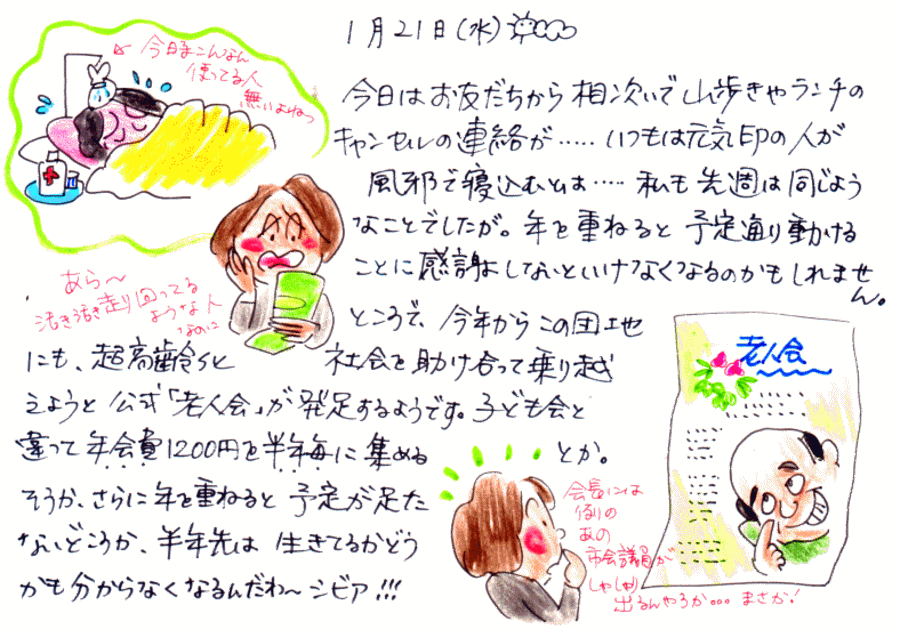 1月21日(水)
今日まこんなん
使ってる人
無いよねっ
今日はお友だちから相次いで山歩きやランチの
キャンセルの連絡が‥‥‥いつもは元気印の人が
風邪で寝込むとは‥‥私も先週は同じよう
なことでしたが。年を重ねると予定通り動ける
ことに感謝しないといけなくなるのかもしれません。
あら〜
活き活き走り回ってる
ような人
なのに
ところで、今年からこの団地
にも、超高齢化社会を助け合って乗り越
えようと公式「老人会」が発足するようです。子ども会と
違って年会費1200円を半年毎に集めるとか。
そうか、さらに年を重ねると予定が立た
ないどころか、半年先は生きてるかどう
かも分からなくなるんだわ〜シビア!!!
老人会
会長には
例の
あの
市会議員が
しゃしゃり
出るんやろか…まさか!